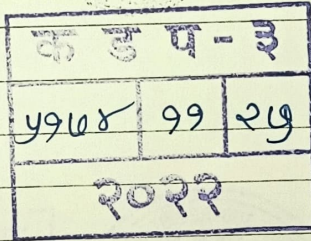 क ड प - ३
५१७४ ११ २७
२०२२